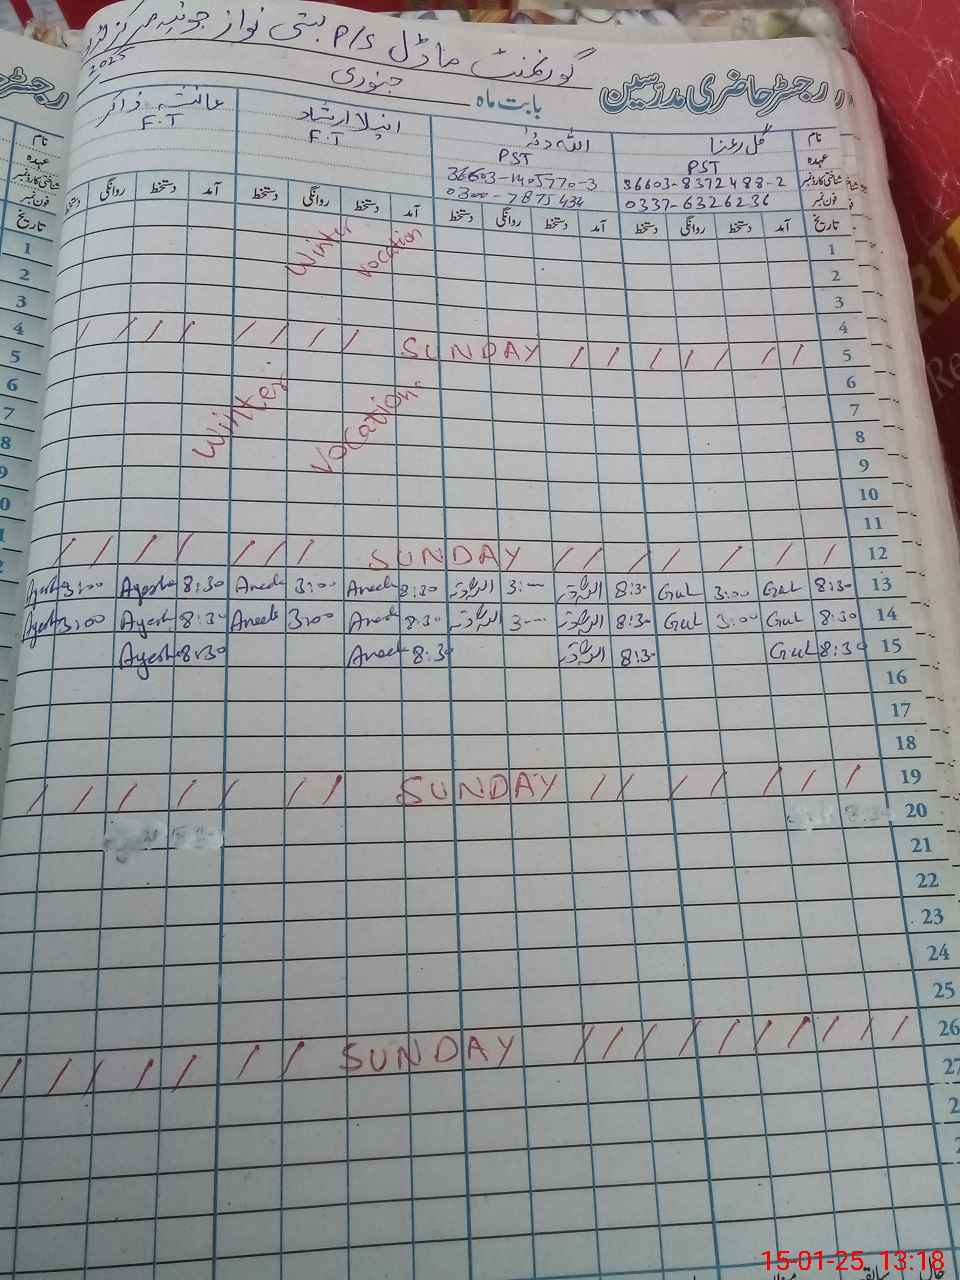 گورنمنٹ ماڈل P/S بستی نواز جوئیہ مرکز
2025
رجسٹر حاضری مدرسین
بابت ماہ جنوری
نام گل رعنا اللہ دتہ انیلا ارشاد عائشہ ذاکر
عہدہ PST PST F.T F.T
شناختی کارڈ نمبر 36603-8372488-2 36603-1405770-3
فون نمبر 0337-6326236 0300-7875434
تاریخ آمد دستخط روانگی دستخط آمد دستخط روانگی دستخط آمد دستخط روانگی دستخط آمد دستخط روانگی دستخط
1 Winter Vocation
2
3
4
5 SUNDAY
6
7 Winter Vocation
8
9
10
11
12 SUNDAY
13 8:30 Gul 3:00 Gul 8:30 اللہ دتہ 3:00 اللہ دتہ 8:30 Aneela 3:00 Aneela 8:30 Ayesha 3:00 Ayesha
14 8:30 Gul 3:00 Gul 8:30 اللہ دتہ 3:00 اللہ دتہ 8:30 Aneela 3:00 Aneela 8:30 Ayesha 3:00 Ayesha
15 8:30 Gul 8:30 اللہ دتہ 8:30 Aneela 8:30 Ayesha
16
17
18
19 SUNDAY
20 8:30
21
22
23
24
25
26 SUNDAY
27
15-01-25 13:18